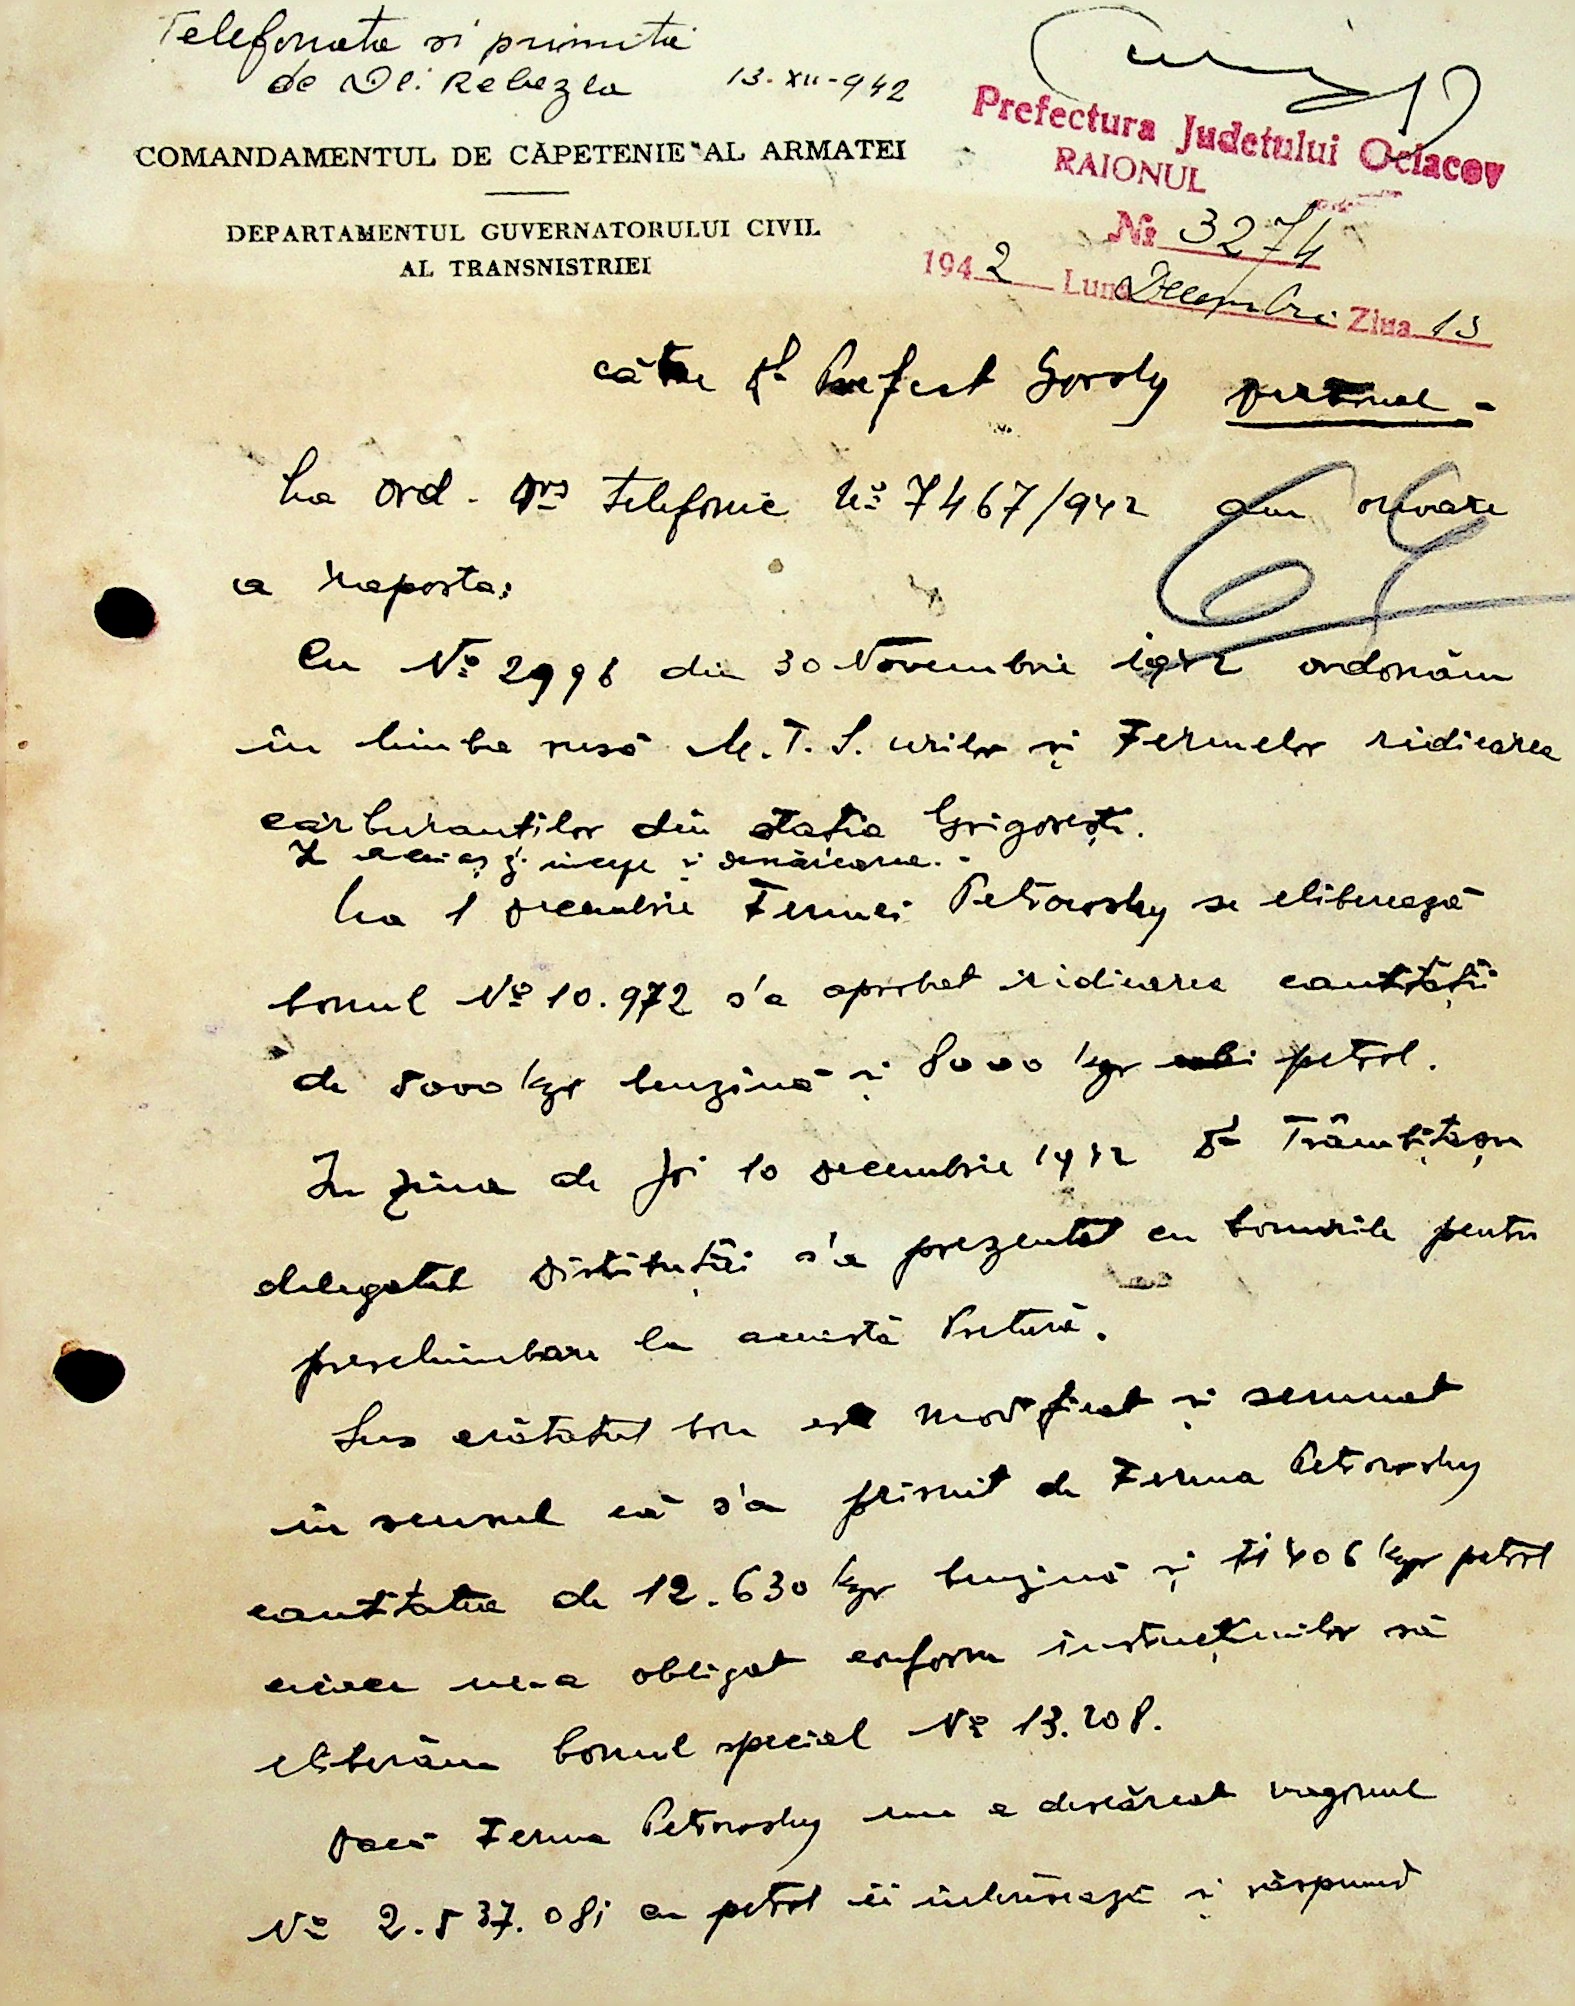 Telefonata si primita
de Dl. Rebegea 13-XII-942
COMANDAMENTUL DE CĂPETENIE AL ARMATEI
DEPARTAMENTUL GUVERNATORULUI CIVIL
AL TRANSNISTRIEI
Prefectura Judetului Oceacov
RAIONUL
Nr 3274
1942 Luna Decembrie Ziua 13
către Dl Prefect Gorsky personal -
La ord. Dvs telefonic No 7467/942 am onoare
a raporta:
Cu No 2996 din 30 Novembrie 1942 ordonăm
în limba rusă M.T.S. urilor și Fermelor ridicarea
carburanților din stația Grigorești.
și descărcarea.
La 1 Decembrie Fermei Petrowsky se eliberează
bonul No 10.972 s'a aprobat ridicarea cantității
de 5000 kgr benzină și 8000 kgr petrol.
In ziua de Joi 10 Decembrie 1942 Dl Trâmbițașu
delegatul Distribuției s'a prezentat cu bonurile pentru
preschimbare la această Pretură.
Sus arătatul bon este modificat și semnat
în sensul că s'a primit de Ferma Petrowsky
cantitatea de 12.630 kgr benzină și 11406 kgr petrol
ne-a obligat conform instrucțiunilor să
eliberăm bonul special No 13.208.
Dacă Ferma Petrowsky nu a descărcat vagonul
No 2.537.081 cu petrol îi interesează și răspund